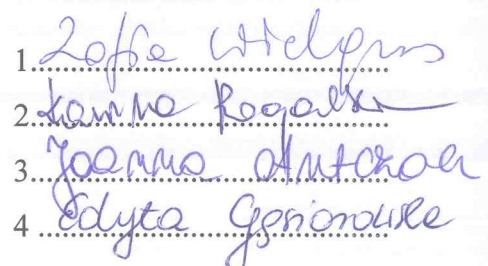 1. Zofia Wielgus
2. Hanna Rogalska
3. Joanna Antczak
4 Edyta Gąsiorowska